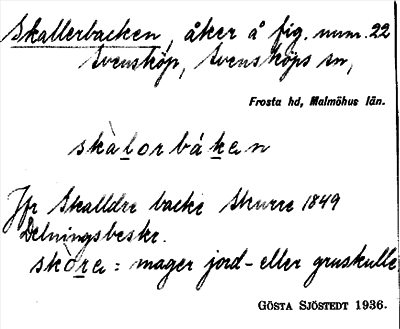 Skallerbacken, åker å fig. num. 22
Svensköp, Svensköps sn,
Frosta hd, Malmöhus län.
skàlorbáken
Jfr Skalldre backe Skurre 1849
Delningsbeskr.
skòre = mager jord- eller gruskulle
GÖSTA SJÖSTEDT 1936.